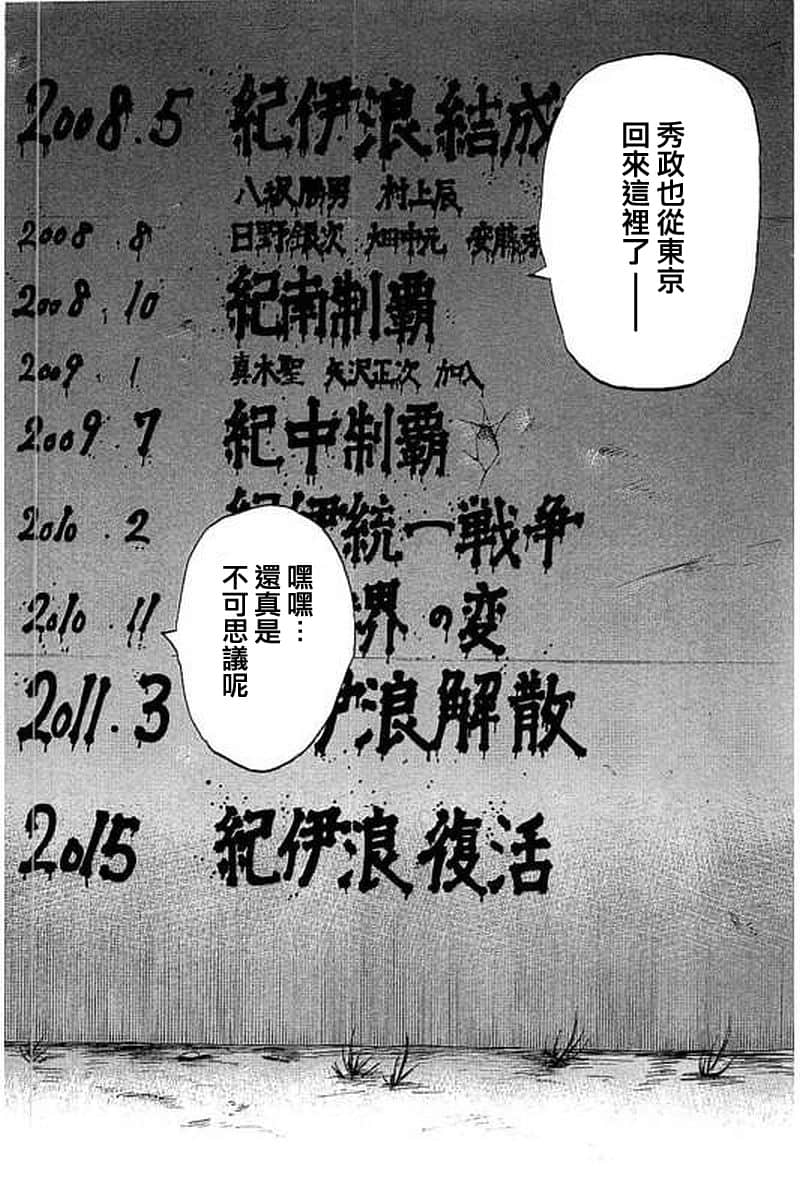 秀政也從東京
回來這裡了——
2008.5 紀伊浪結成
村上辰
2008.8 日野銀次 畑中元 安藤秀
2008.10 紀南制覇
2009.1 真木聖 矢沢正次 加入
2009.7 紀中制覇
2010.2 紀伊統一戦争
2010.11 界の変
2011.3 伊浪解散
嘿嘿…
還真是
不可思議呢
2015 紀伊浪復活